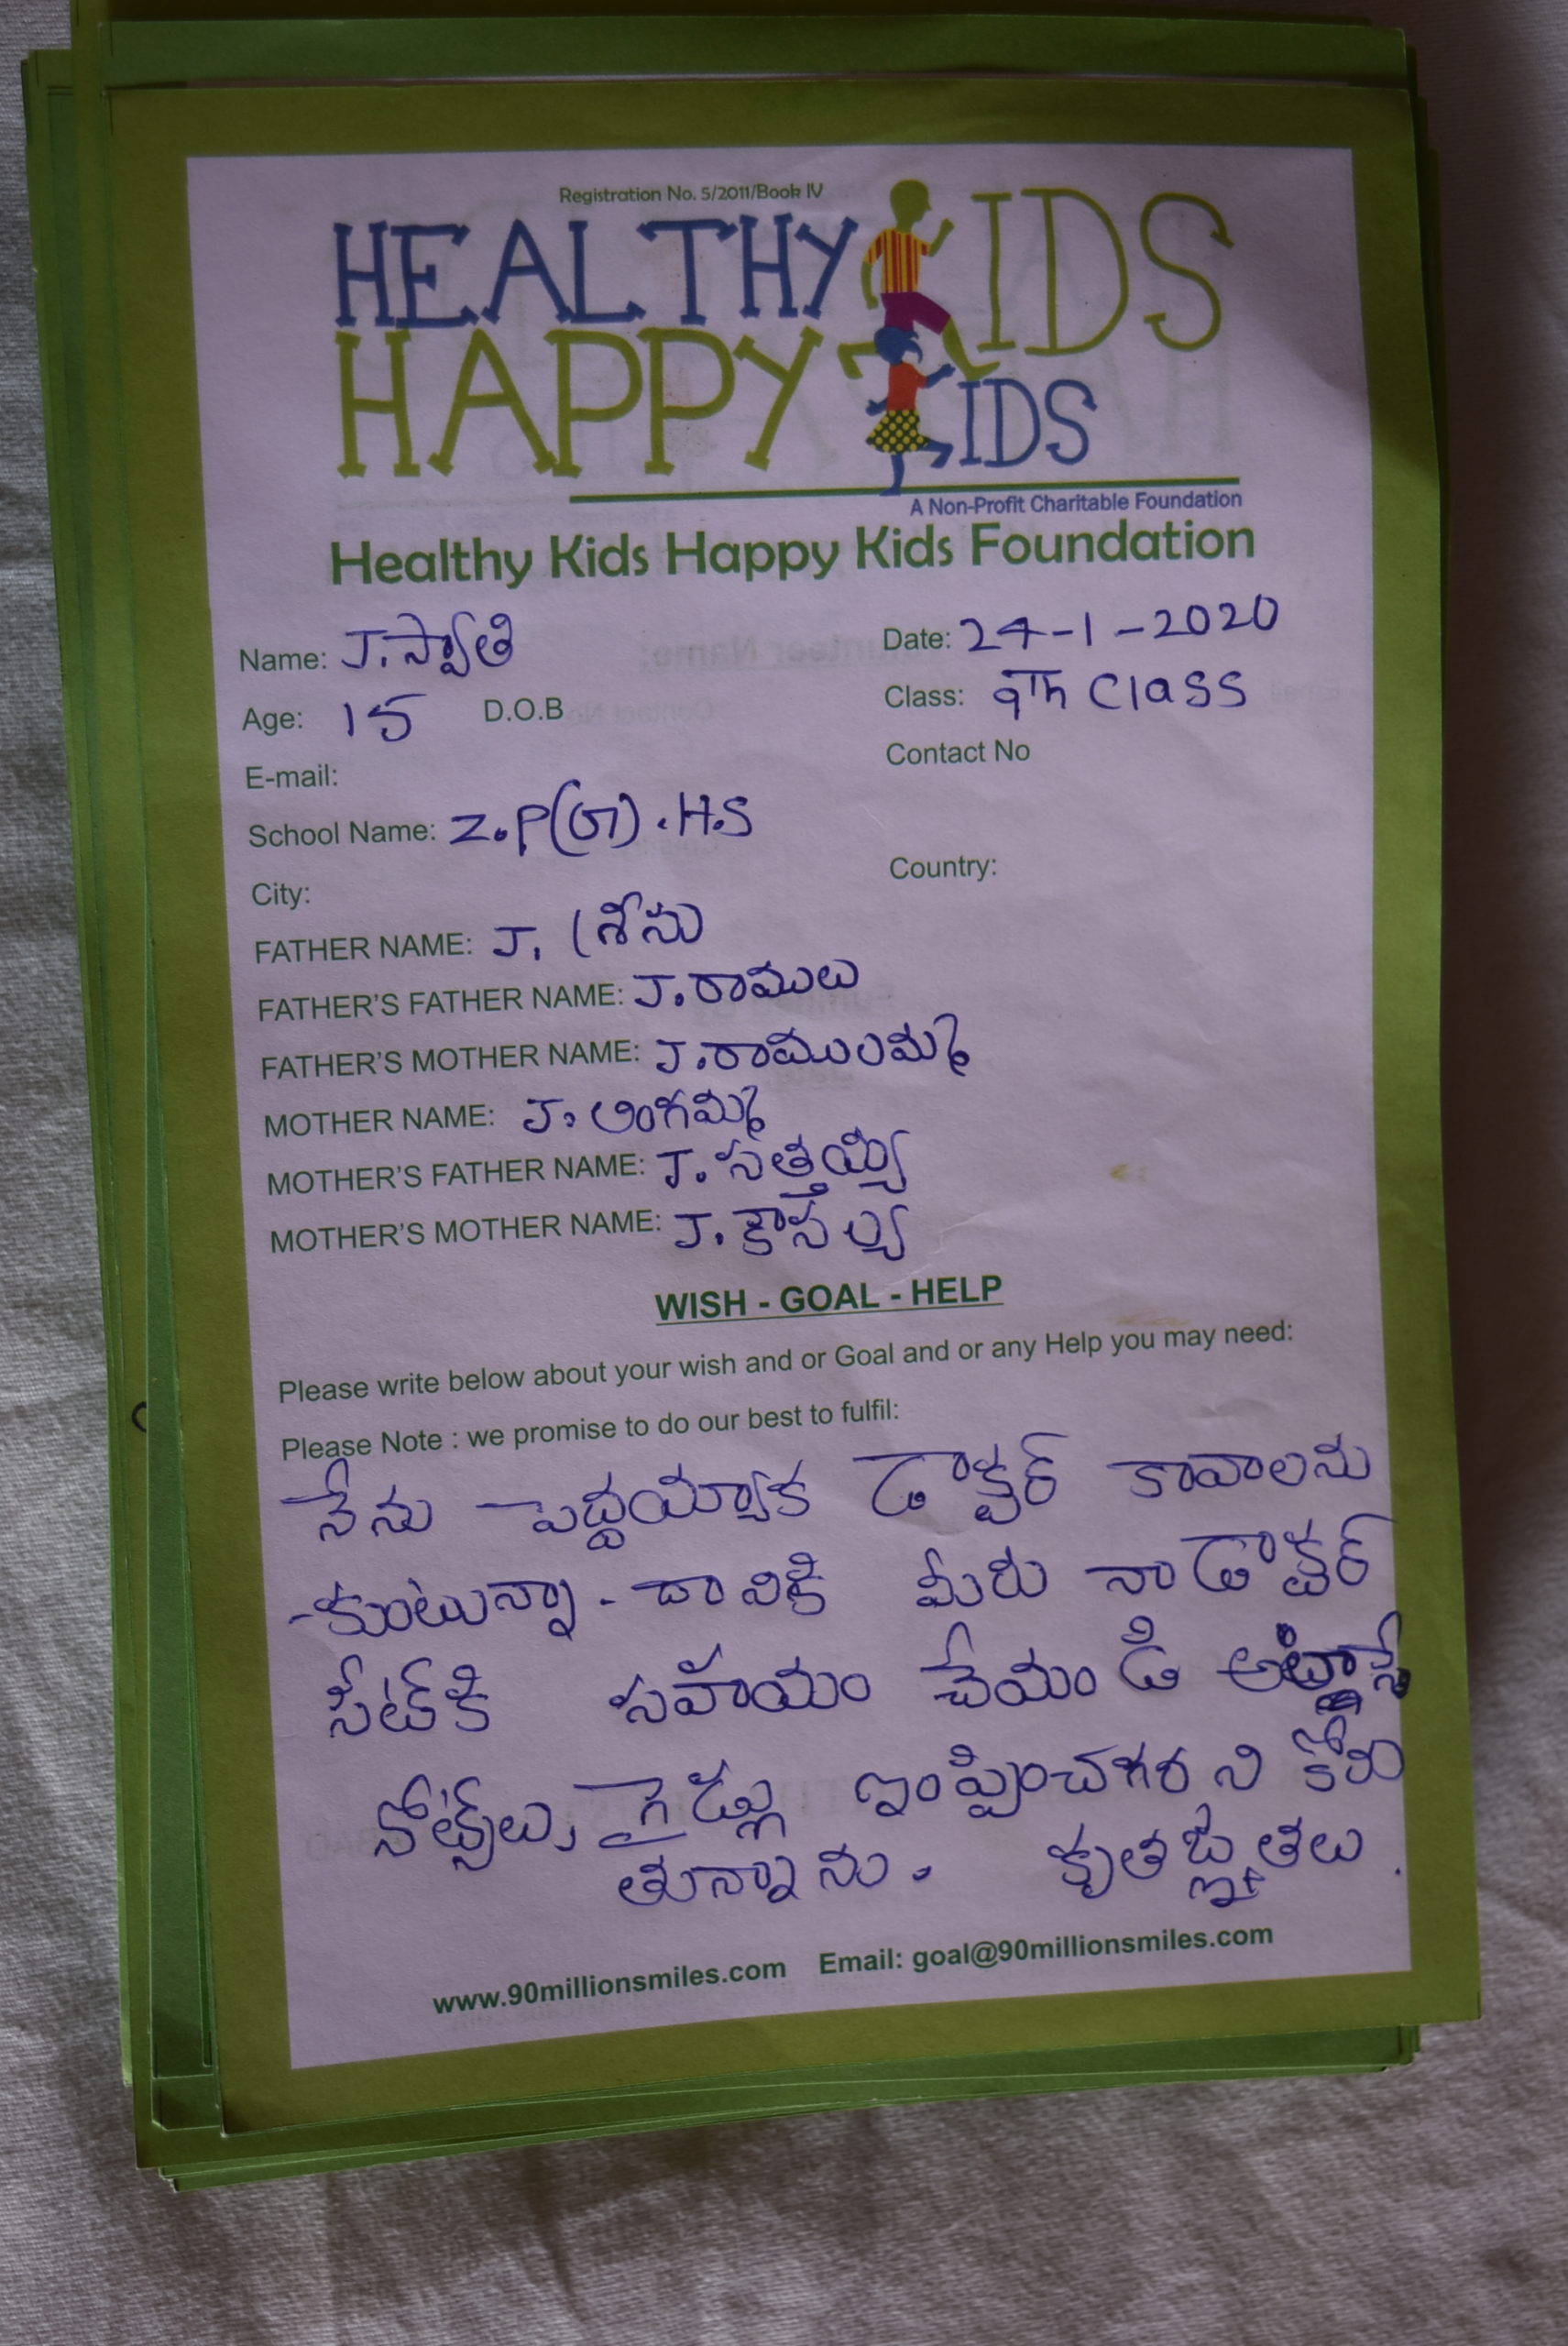 Registration No. 5/2011/Book IV
HEALTHY KIDS
HAPPY KIDS
A Non-Profit Charitable Foundation
Healthy Kids Happy Kids Foundation
Name: J. స్వాతి Date: 24-1-2020
Age: 15 D.O.B Class: 9Th Class
E-mail: Contact No
School Name: Z.P(G).H.S
City: Country:
FATHER NAME: J. శ్రీను
FATHER'S FATHER NAME: J. రాములు
FATHER'S MOTHER NAME: J. రాములమ్మ
MOTHER NAME: J. లింగమ్మ
MOTHER'S FATHER NAME: J. సత్తయ్య
MOTHER'S MOTHER NAME: J. కౌసల్య
WISH - GOAL - HELP
Please write below about your wish and or Goal and or any Help you may need:
Please Note : we promise to do our best to fulfil:
నేను పెద్దయ్యాక డాక్టర్ కావాలను
-కుంటున్నా. దానికి మీరు నా డాక్టర్
సీట్‌కి సహాయం చేయండి
నోట్స్‌లు, గైడ్లు పంప్పించగరని కోరు
తున్నాను. కృతజ్ఞతలు.
www.90millionsmiles.com Email: goal@90millionsmiles.com